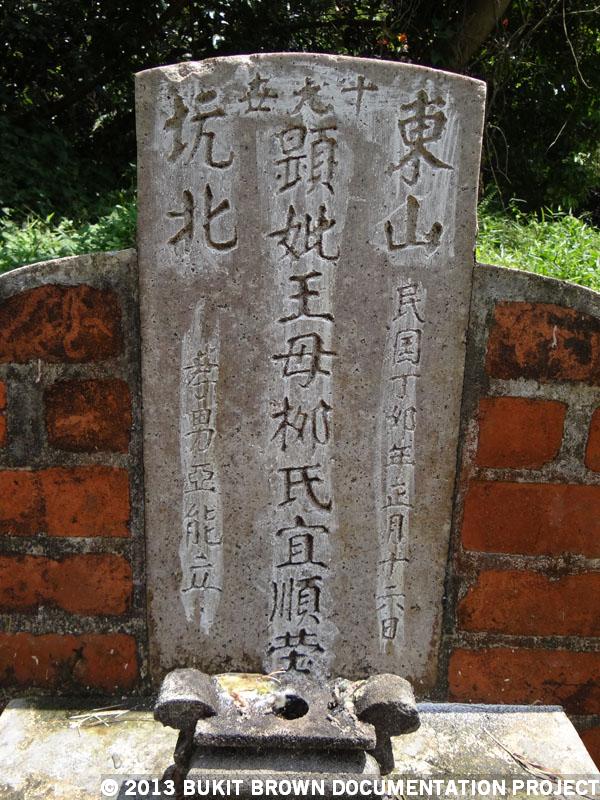 十九世
東山
民国丁卯年正月十六日
顕妣王母柳氏宜順茔
坑北
孝男亞能立
© 2013 BUKIT BROWN DOCUMENTATION PROJECT